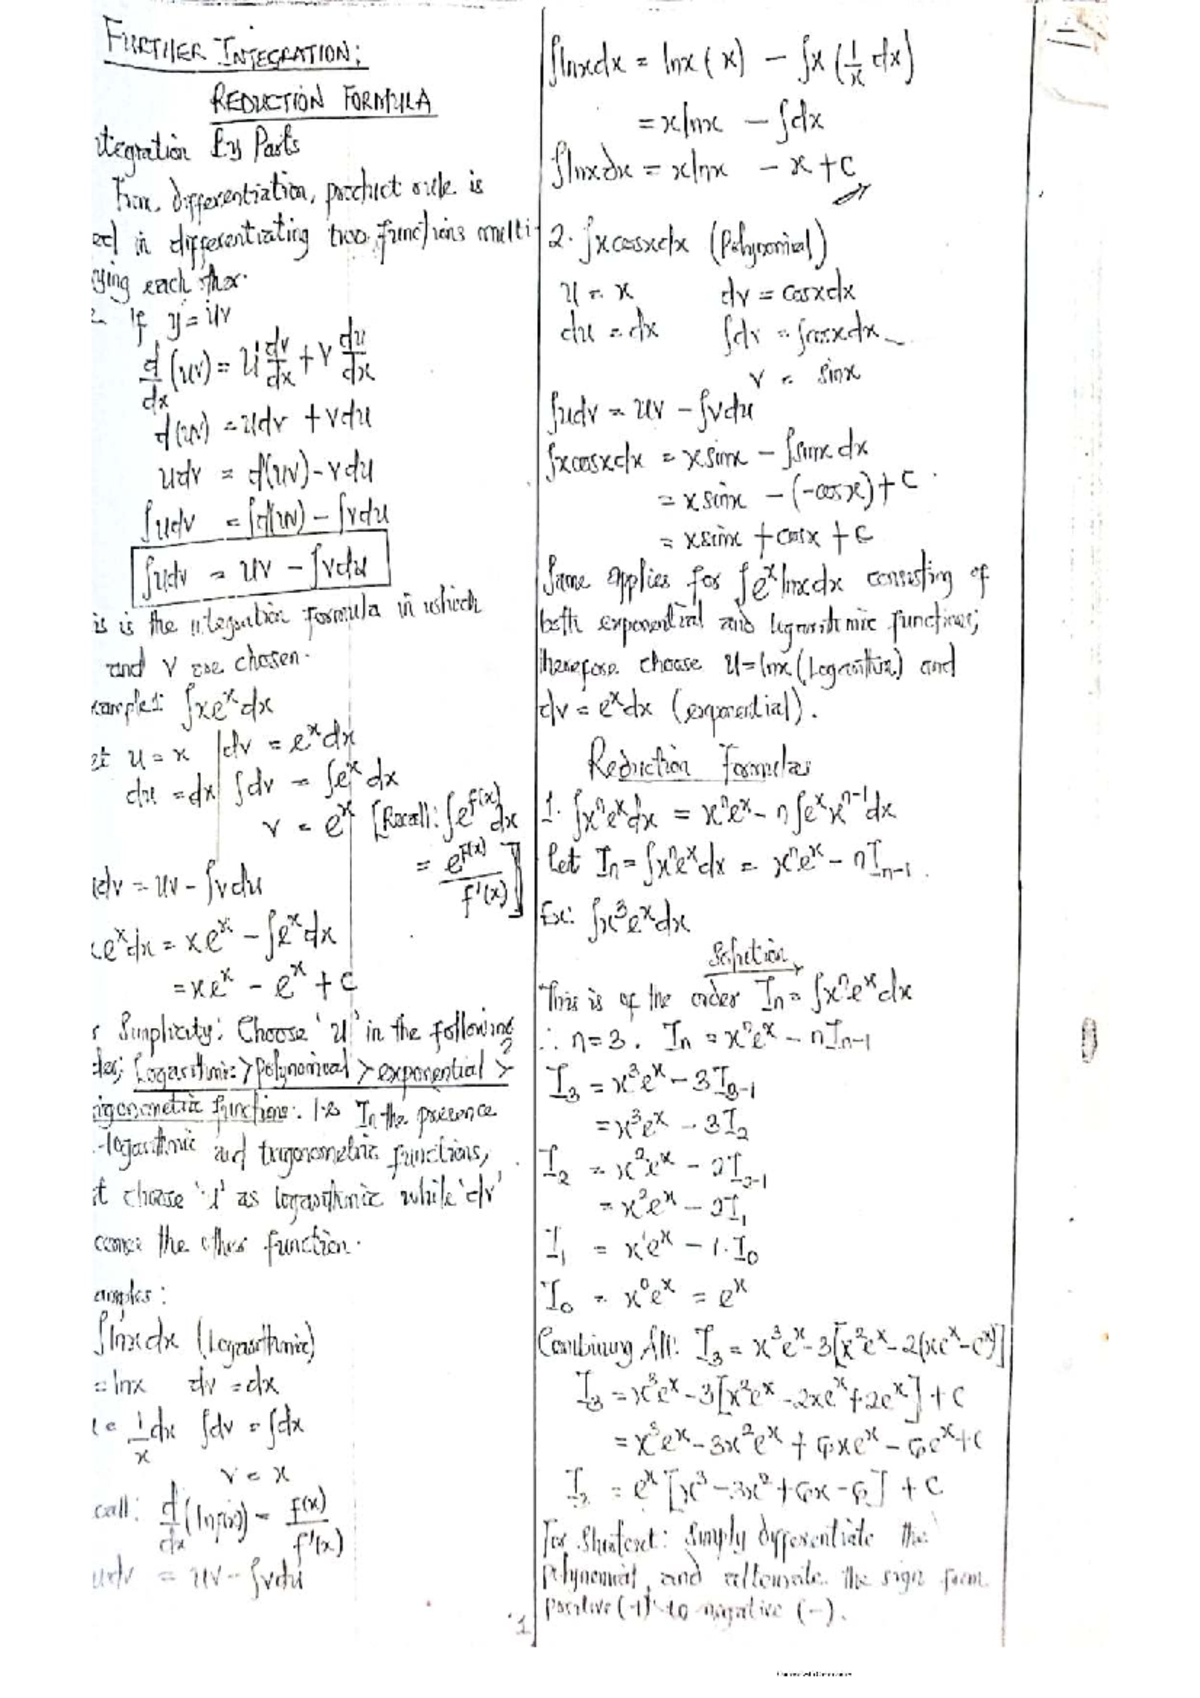 FURTHER INTEGRATION:
REDUCTION FORMULA
ntegration By Parts
From differentiation, product rule is
ed in differentiating two functions multi-
ying each other.
If y = uv
d/dx (uv) = u dv/dx + v du/dx
d(uv) = udv + vdu
udv = d(uv) - vdu
∫udv = ∫d(uv) - ∫vdu
∫udv = uv - ∫vdu
is is the integration formula in which
and v are chosen.
xample 1: ∫xe^x dx
et u = x | dv = e^x dx
du = dx | ∫dv = ∫e^x dx
v = e^x [Recall: ∫e^f(x) dx
= e^f(x)/f'(x)]
udv = uv - ∫vdu
xe^x dx = xe^x - ∫e^x dx
= xe^x - e^x + c
r Simplicity: Choose 'U' in the following
der; Logarithmic > polynomial > exponential >
rigonometric functions. i.e In the presence
logarithmic and trigonometric functions,
t choose 'U' as logarithmic while 'dv'
comes the other function.
amples:
∫lnx dx (Logarithmic)
= lnx dv = dx
= 1/x dx ∫dv = ∫dx
v = x
call: d/dx (lnf(x)) = f(x)/f'(x)
udv = uv - ∫vdu
∫lnxdx = lnx(x) - ∫x(1/x dx)
= xlnx - ∫dx
∫lnxdx = xlnx - x + c
2. ∫xcosxdx (Polynomial)
u = x dv = cosxdx
du = dx ∫dv = ∫cosxdx
v = sinx
∫udv = uv - ∫vdu
∫xcosxdx = xsinx - ∫sinxdx
= xsinx - (-cosx) + c
= xsinx + cosx + c
Same applies for ∫e^x lnxdx consisting of
both exponential and logarithmic functions;
therefore choose U = lnx (Logarithm) and
dv = e^x dx (exponential).
Reduction Formulas
1. ∫x^n e^x dx = x^n e^x - n∫e^x x^(n-1) dx
Let I_n = ∫x^n e^x dx = x^n e^x - nI_(n-1).
Ex: ∫x^3 e^x dx
Solution
This is of the order I_n = ∫x^n e^x dx
∴ n = 3. I_n = x^n e^x - nI_(n-1)
I_3 = x^3 e^x - 3I_(3-1)
= x^3 e^x - 3I_2
I_2 = x^2 e^x - 2I_(2-1)
= x^2 e^x - 2I_1
I_1 = x^1 e^x - 1.I_0
I_0 = x^0 e^x = e^x
Combining All: I_3 = x^3 e^x - 3[x^2 e^x - 2(xe^x - e^x)]
I_3 = x^3 e^x - 3[x^2 e^x - 2xe^x + 2e^x] + c
= x^3 e^x - 3x^2 e^x + 6xe^x - 6e^x + c
I_3 = e^x [x^3 - 3x^2 + 6x - 6] + c
For Shortcut: Simply differentiate the
polynomial, and alternate the sign from
positive (+) to negative (-).
1